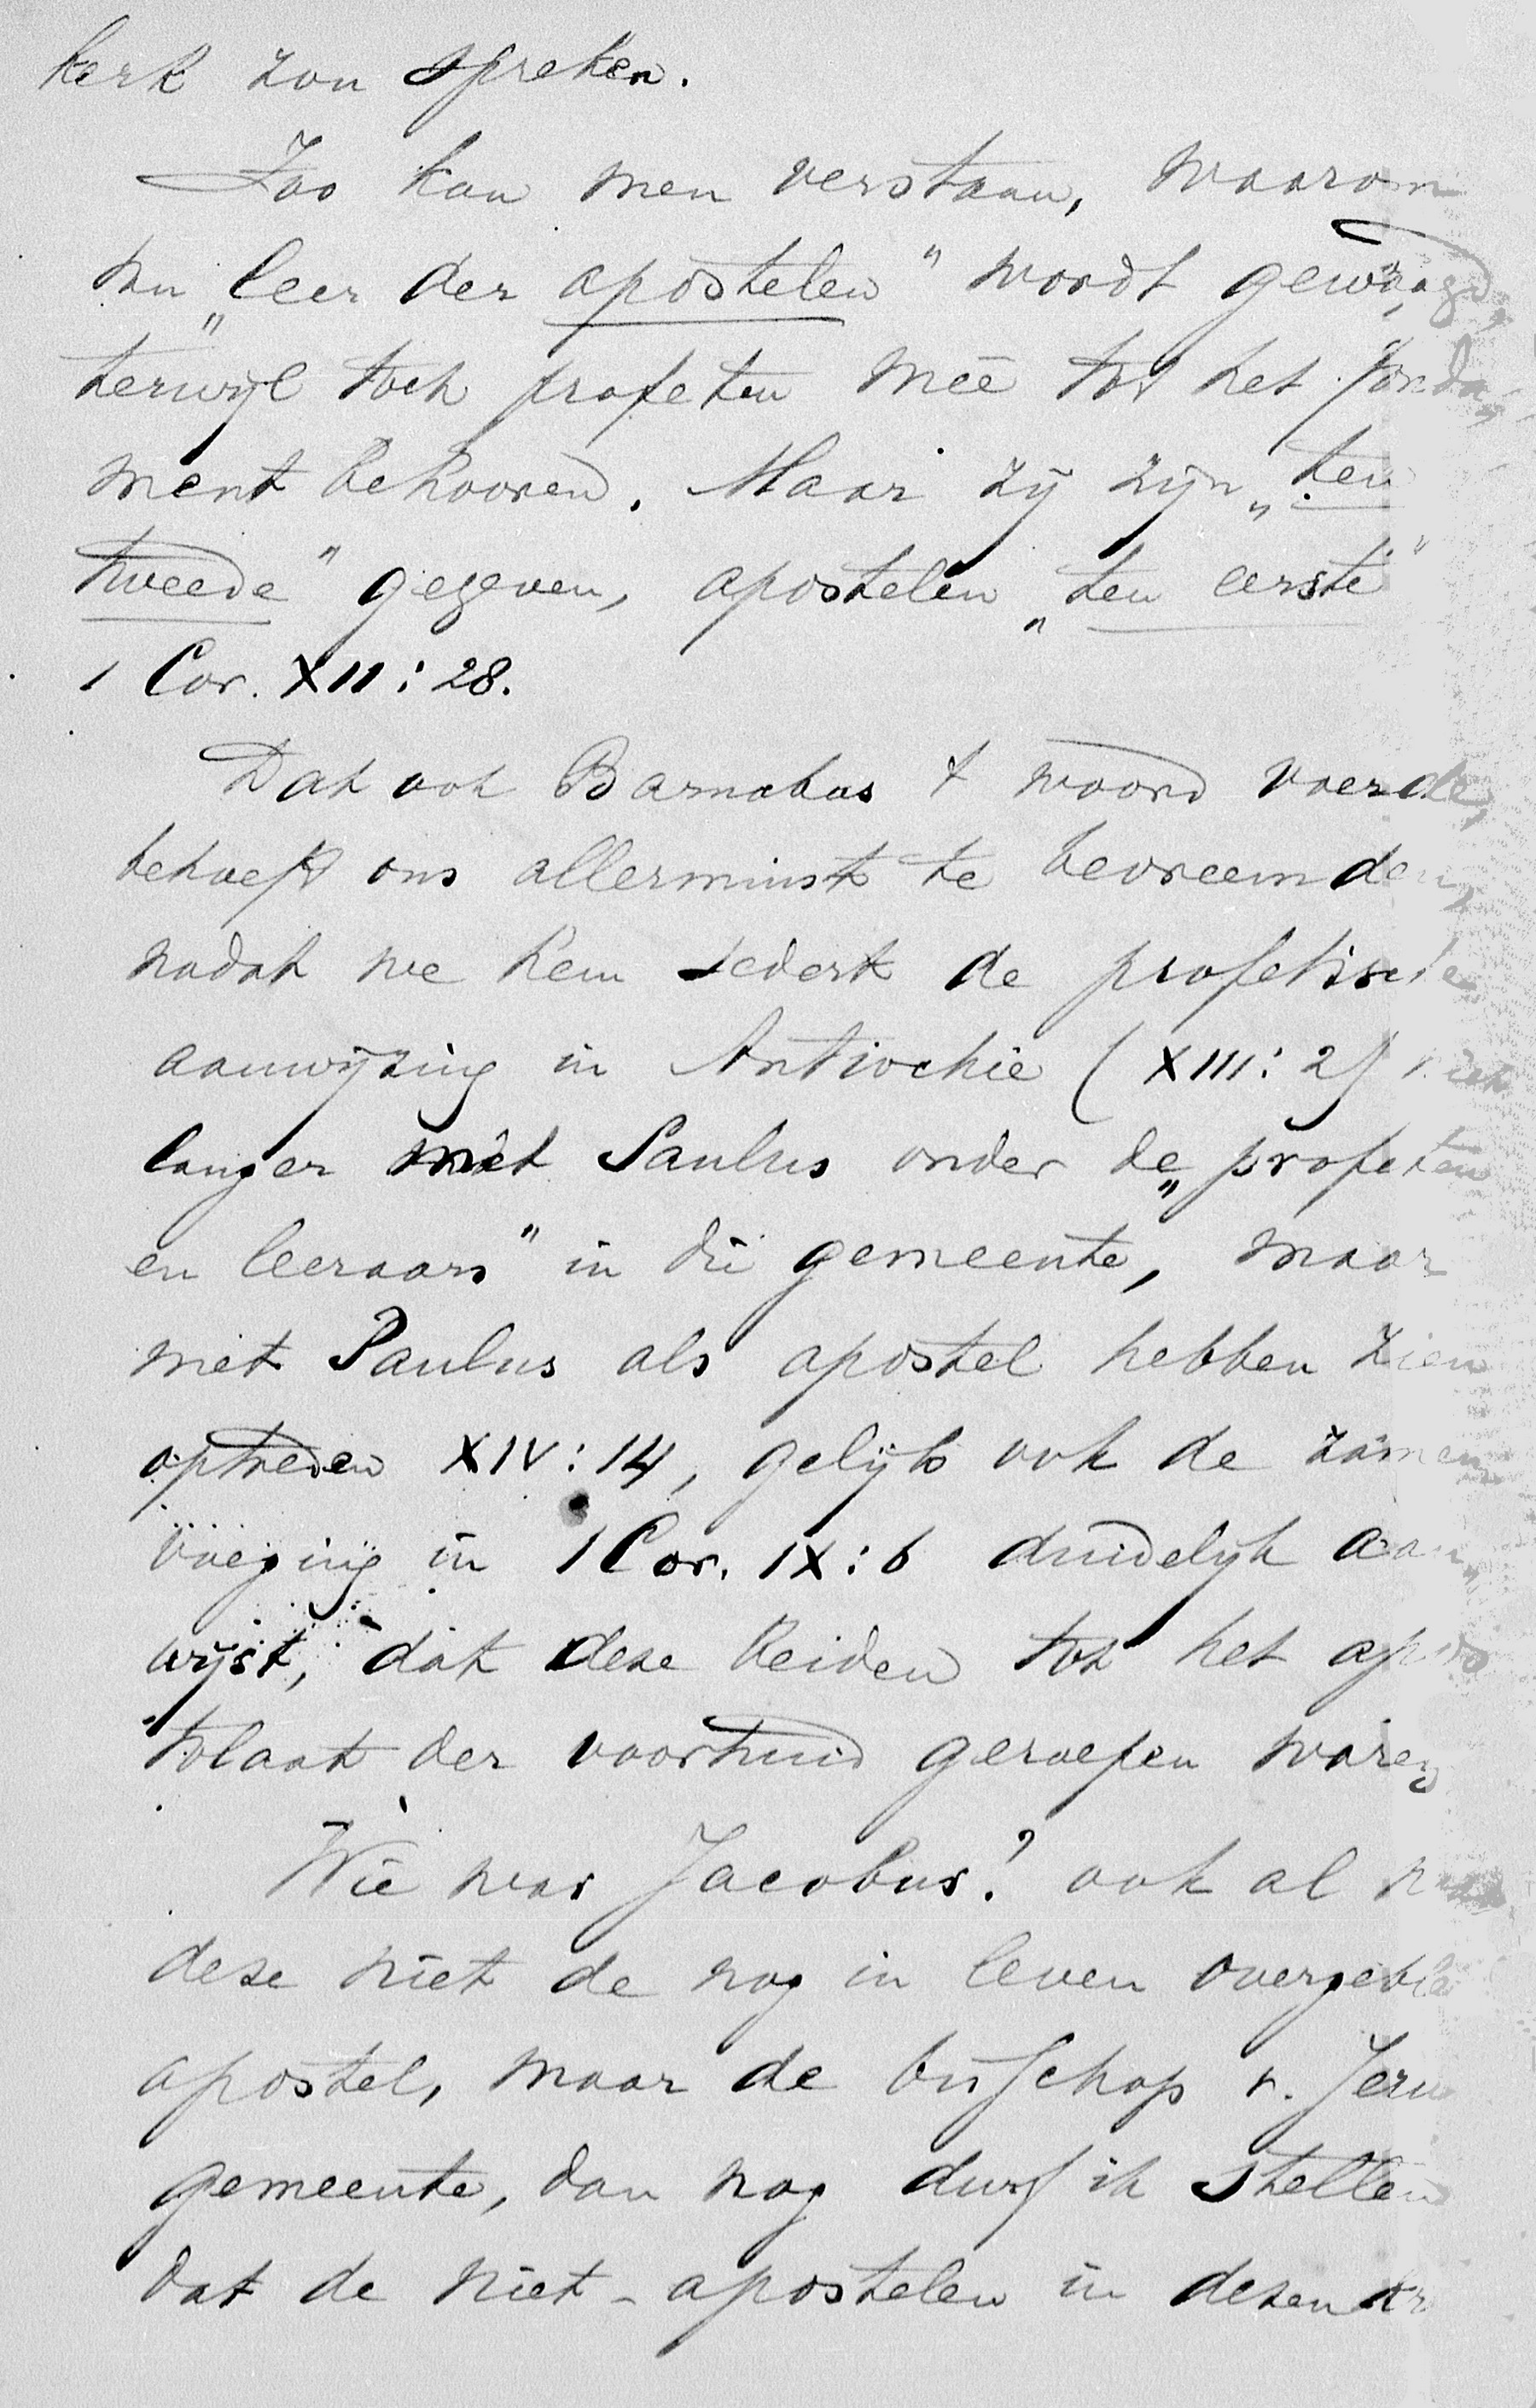 kerk zou spreken.
Zoo kan men verstaan, waarom
nu „leer der apostelen" wordt gewaagd,
terwijl toch profeten meê tot het fonda„
ment behooren. Maar zij zijn „ten
tweede" gegeven, apostelen „ten eerste"
1 Cor. XII: 28.
Dat ook Barnabas 't woord voerde,
behoeft ons allerminst te bevreemden,
nadat we hem sedert de profetische
aanwijzing in Antiochie (XIII: 2) niet
langer met Saulus onder de „profeten
en leeraars" in die gemeente, maar
met Paulus als apostel hebben zien
optreden XIV: 14, gelijk ook de zamen
voeging in 1 Cor. IX: 6 duidelijk aan„
wijst, dat deze beiden tot het apos
tolaat der voorhuid geroepen waren
Wie was Jacobus? ook al
deze niet de nog in leven overgeble
apostel, maar de bisschop v. Jeru
gemeente, dan nog durf ik stellen
dat de niet-apostelen in dezen